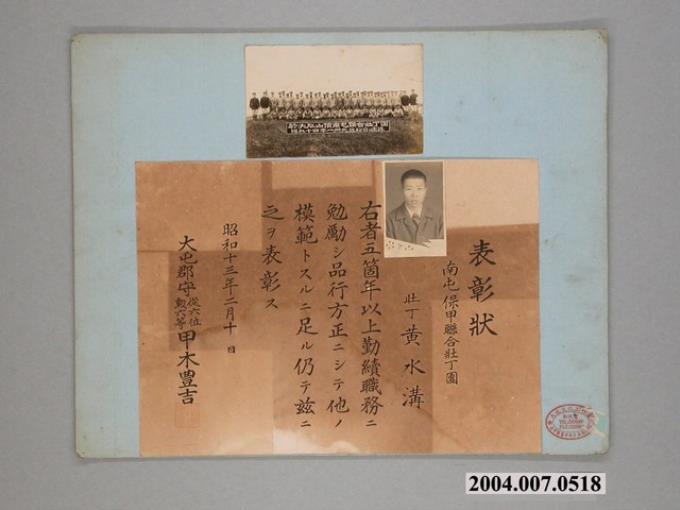 表彰状
南屯保甲聯合壯丁團
壯丁 黄水溝
右者五箇年以上勤績職務ニ
勉励シ品行方正ニシテ他ノ
模範トスルニ足ル仍テ茲ニ
之ヲ表彰ス
昭和十三年二月十日
大屯郡守 從六位 勲六等 甲木豊吉
2004.007.0518